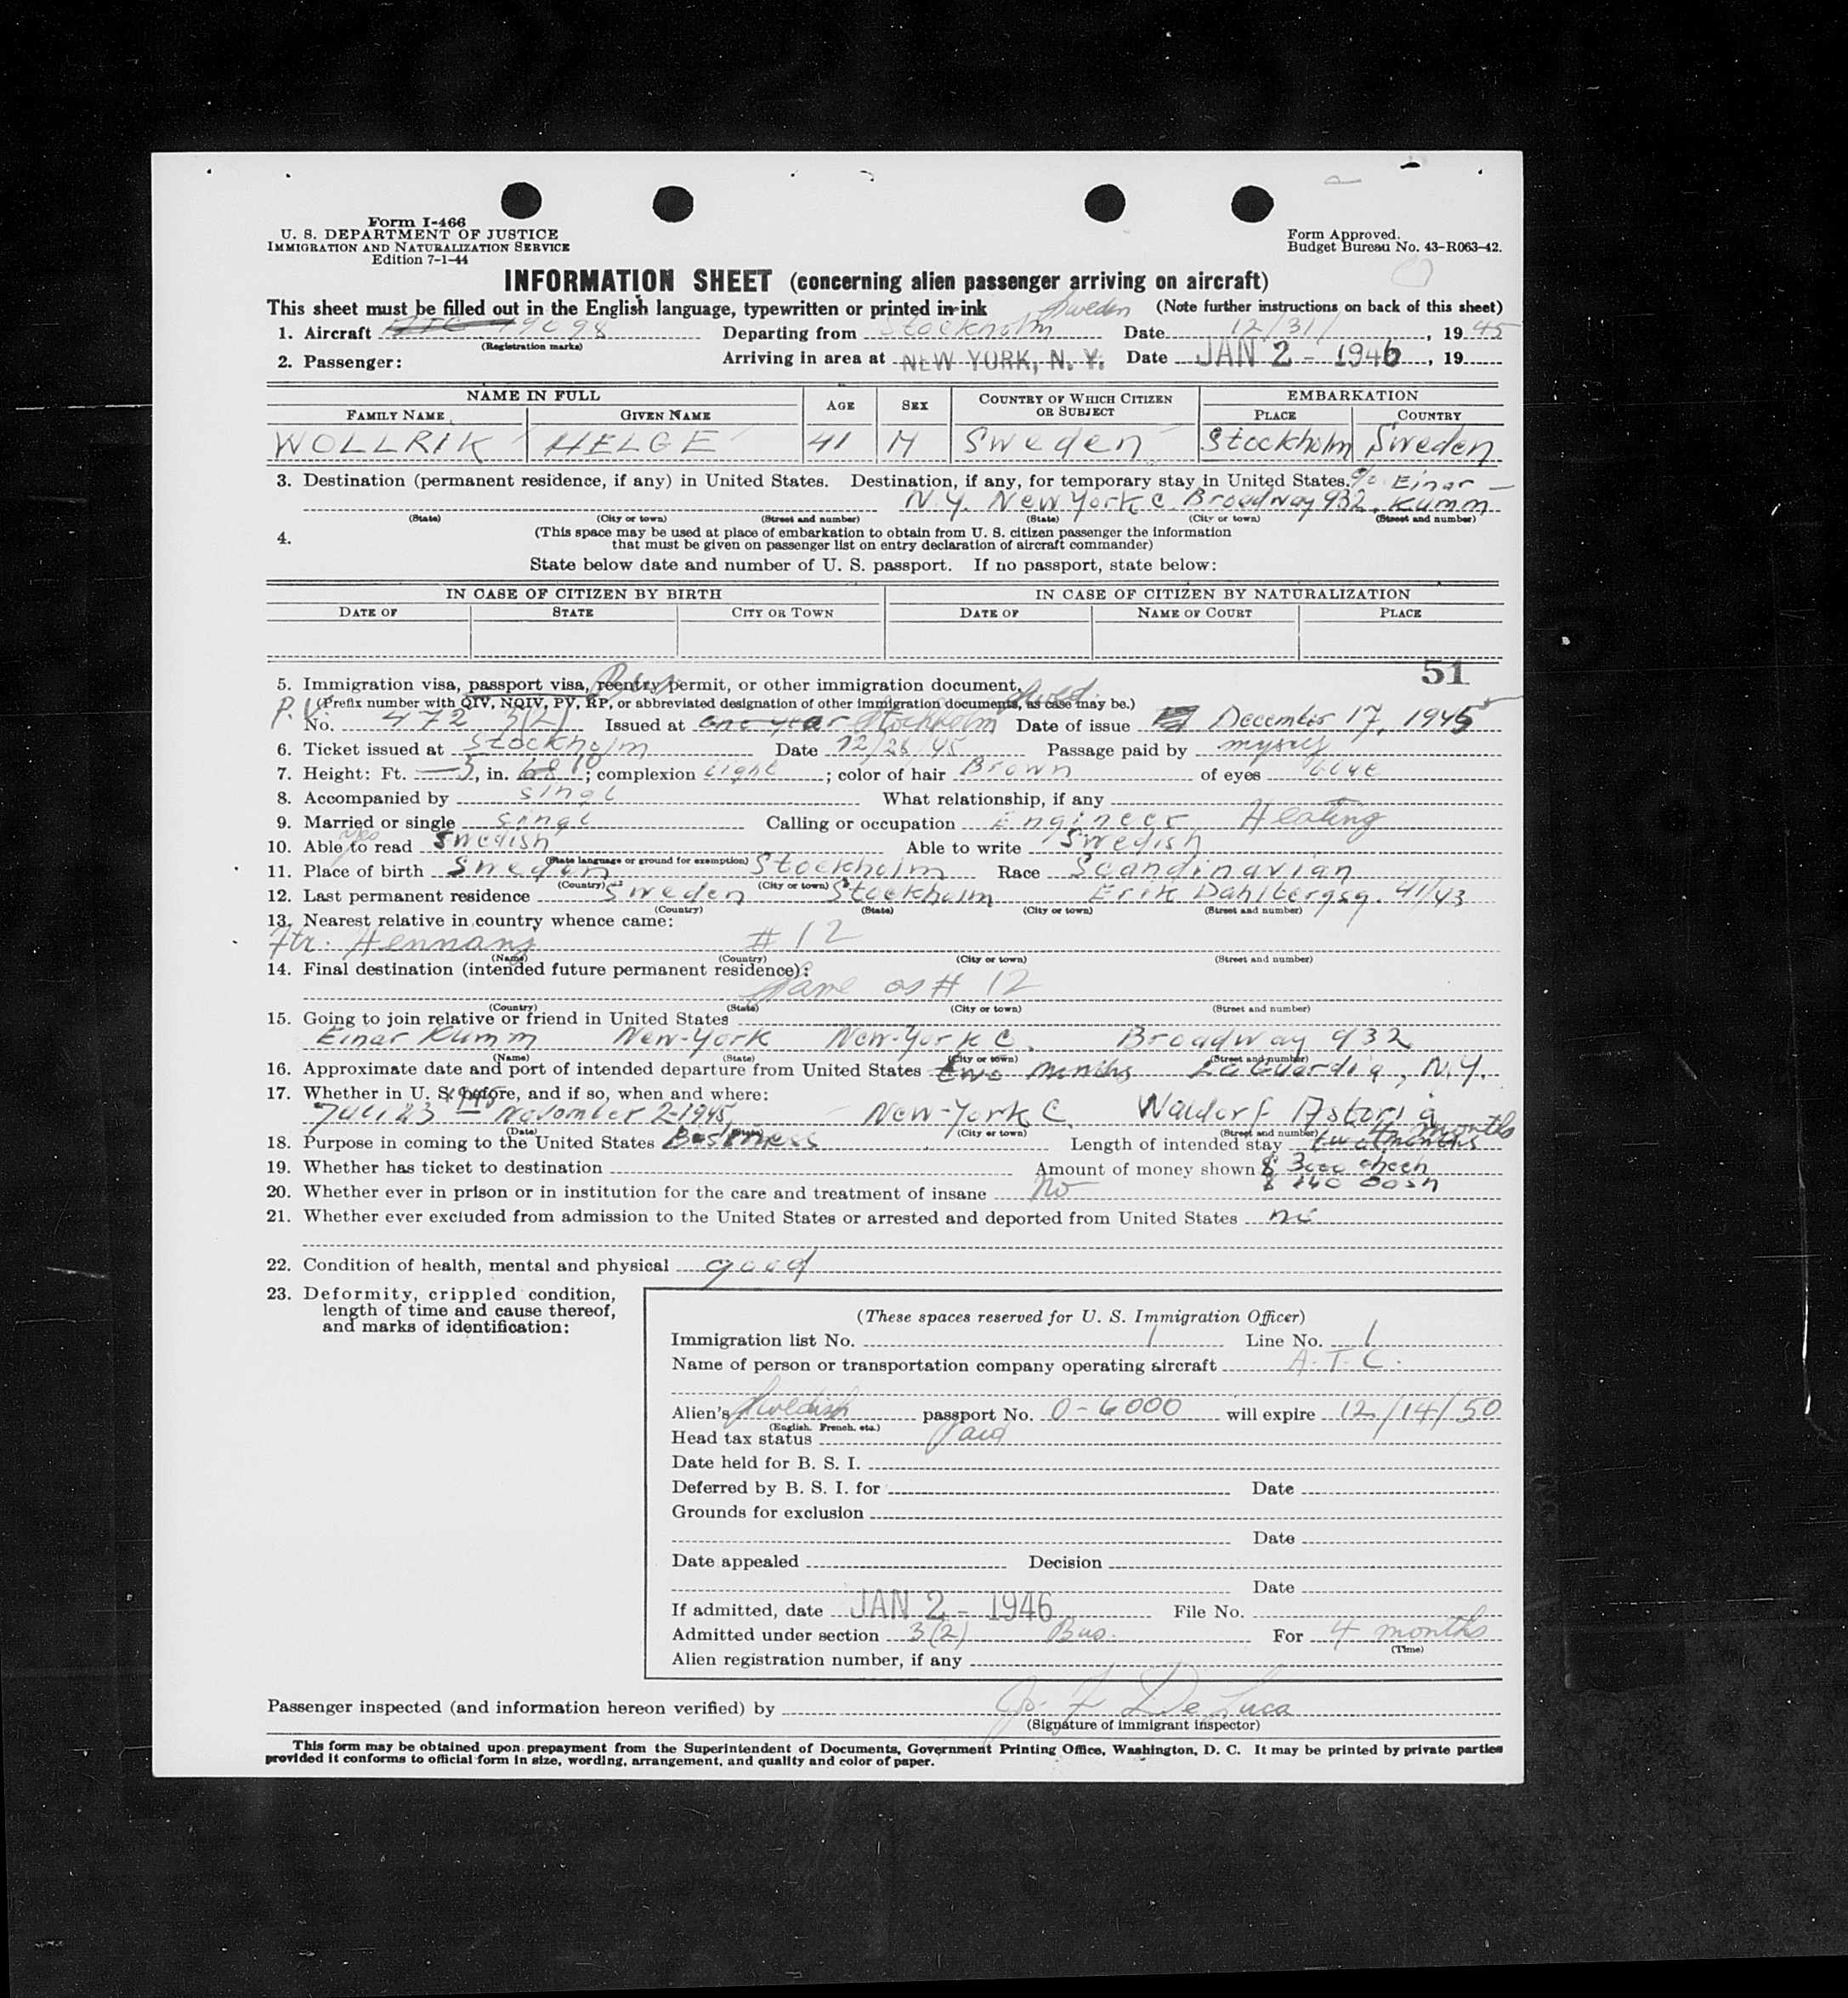 Form I-466
U. S. DEPARTMENT OF JUSTICE
IMMIGRATION AND NATURALIZATION SERVICE
Edition 7-1-44
Form Approved.
Budget Bureau No. 43-R063-42.
INFORMATION SHEET (concerning alien passenger arriving on aircraft)
This sheet must be filled out in the English language, typewritten or printed in ink (Note further instructions on back of this sheet)
Sweden
1. Aircraft 9098 Departing from Stockholm Date 12/31/, 1945
(Registration marks)
2. Passenger: Arriving in area at NEW YORK, N. Y. Date JAN 2 - 1946, 19
NAME IN FULL AGE SEX COUNTRY OF WHICH CITIZEN OR SUBJECT EMBARKATION
FAMILY NAME GIVEN NAME PLACE COUNTRY
WOLLRIK HELGE 41 M Sweden Stockholm Sweden
3. Destination (permanent residence, if any) in United States. Destination, if any, for temporary stay in United States. c/o Einar
N.Y. New York C. Broadway 932. Kumm
(State) (City or town) (Street and number) (State) (City or town) (Street and number)
4. (This space may be used at place of embarkation to obtain from U. S. citizen passenger the information
that must be given on passenger list on entry declaration of aircraft commander)
State below date and number of U. S. passport. If no passport, state below:
IN CASE OF CITIZEN BY BIRTH IN CASE OF CITIZEN BY NATURALIZATION
DATE OF STATE CITY OR TOWN DATE OF NAME OF COURT PLACE
51
5. Immigration visa, passport visa, reentry permit, or other immigration document.
(Prefix number with QIV, NQIV, PV, RP, or abbreviated designation of other immigration documents, as case may be.)
P.V. No. 472 3(2) Issued at one year Stockholm Swed. Date of issue December 17, 1945
6. Ticket issued at Stockholm Date 12/26/45 Passage paid by myself
7. Height: Ft. 5, in. 10; complexion light; color of hair Brown of eyes blue
8. Accompanied by singl What relationship, if any
9. Married or single singl Calling or occupation Engineer Heating
10. Able to read yes Swedish Able to write Swedish
(State language or ground for exemption)
11. Place of birth Sweden Stockholm Race Scandinavian
(Country) (City or town)
12. Last permanent residence Sweden Stockholm Erik Dahlbergsg. 41/43
(Country) (State) (City or town) (Street and number)
13. Nearest relative in country whence came:
Hennans #12
(Name) (Country) (City or town) (Street and number)
14. Final destination (intended future permanent residence):
Same as # 12
(Country) (State) (City or town) (Street and number)
15. Going to join relative or friend in United States
Einar Kumm New-York New-York C. Broadway 932
(Name) (State) (City or town) (Street and number)
16. Approximate date and port of intended departure from United States two months LaGuardia, N.Y.
17. Whether in U. S. before, and if so, when and where:
Juli 23 1945 November 2-1945 New-York C. Waldorf Astoria
(Date) (State) (City or town) (Street and number)
18. Purpose in coming to the United States Business Length of intended stay two months 4 months
19. Whether has ticket to destination Amount of money shown $ 3000 check
$ 140 cash
20. Whether ever in prison or in institution for the care and treatment of insane No
21. Whether ever excluded from admission to the United States or arrested and deported from United States no
22. Condition of health, mental and physical good
23. Deformity, crippled condition,
length of time and cause thereof,
and marks of identification:
(These spaces reserved for U. S. Immigration Officer)
Immigration list No. 1 Line No. 1
Name of person or transportation company operating aircraft A.T.C.
Alien's Swedish passport No. 0-6000 will expire 12/14/50
(English, French, etc.)
Head tax status Paid
Date held for B. S. I.
Deferred by B. S. I. for Date
Grounds for exclusion
Date
Date appealed Decision
Date
If admitted, date JAN 2 - 1946 File No.
Admitted under section 3(2) Bus. For 4 months
(Time)
Alien registration number, if any
Passenger inspected (and information hereon verified) by De Luca
(Signature of immigrant inspector)
This form may be obtained upon prepayment from the Superintendent of Documents, Government Printing Office, Washington, D. C. It may be printed by private parties
provided it conforms to official form in size, wording, arrangement, and quality and color of paper.